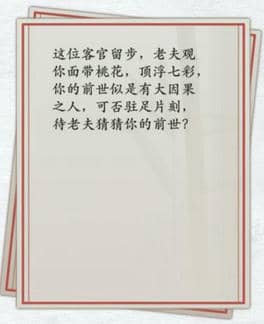 这位客官留步，老夫观
你面带桃花，顶浮七彩，
你的前世似是有大因果
之人，可否驻足片刻，
待老夫猜猜你的前世？